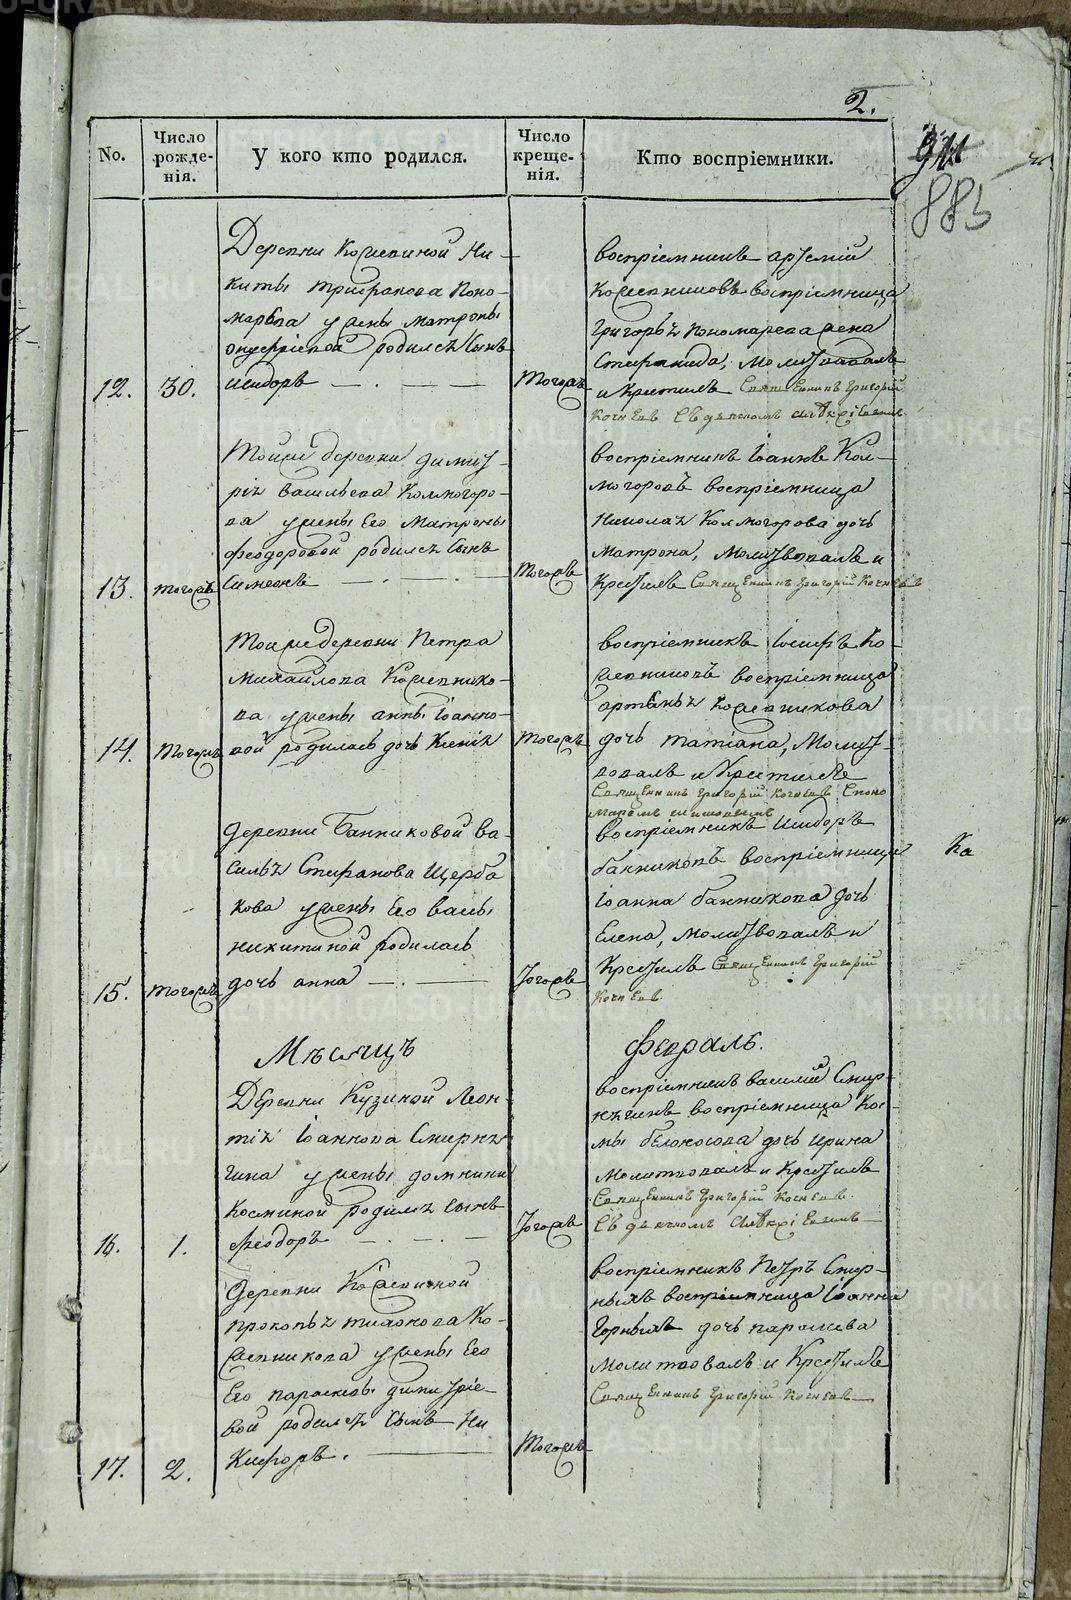 2.
911
885
No.
Число рожде-нія.
У кого кто родился.
Число креще-нія.
Кто воспріемники.
Деревни Кожевиной Ни-
киты Трифанова Поно-
марева у жены Матроны
родился сынъ
12. 30. Исидоръ
Тогожъ
воспріемникъ Артемій
Кожевниковъ воспріемница
Григорья Пономарева жена
Стефанида, молитвовалъ
и крестилъ Священникъ Григорій
Кочневъ съ дьячкомъ
Тойже деревни Димит-
рія Васильева Колмогоро-
ва у жены его Матроны
Феодоровой родился сынъ
13. тогожъ Симеонъ
Тогожъ
воспріемникъ Іоаннъ Кол-
могоровъ воспріемница
Николая Колмогорова дочь
Матрона, молитвовалъ и
крестилъ Священникъ Григорій Кочневъ
Тойже деревни Петра
Михайлова Кожевнико-
ва у жены Анны Іоанно-
14. Тогожъ вой родилась дочь Ксенія
Тогожъ
воспріемникъ Іосифъ Ко-
жевниковъ воспріемница
Артемья Кожевникова
дочь Татіана, молит-
вовалъ и крестилъ
Священникъ Григорій Кочневъ с поно
маремъ
деревни Банниковой Ва-
силья Стефанова Щерба
кова у жены его Вассы
Никитиной родилась
15. тогожъ дочь Анна
Тогожъ
воспріемникъ Исидоръ
Банниковъ воспріемница
Іоанна Банникова дочь
Елена, молитвовалъ и
крестилъ Священникъ Григорій
Кочневъ
Ка
Мѣсяцъ Февраль.
Деревни Кузиной Леон-
тія Іоаннова Смирня-
гина у жены Домники
Косминой родился сынъ
16. 1. Феодоръ
Тогожъ
воспріемникъ Василій Смир-
нягинъ воспріемница Кос-
мы Белоносова дочь Ирина
молитвовалъ и крестилъ
Священникъ Григорій Кочневъ
съ дьячкомъ
Деревни Кожевиной
Прокопья Тихонова Ко-
жевникова у жены его
его Парасковьи Димитріе-
вой родился сынъ Ни
17. 2. кифоръ.
Тогожъ
воспріемникъ Петръ Смир-
ныхъ воспріемница Іоанна
Горныхъ дочь
молитвовалъ и крестилъ
Священникъ Григорій Кочневъ
METRIKI.GASO-URAL.RU